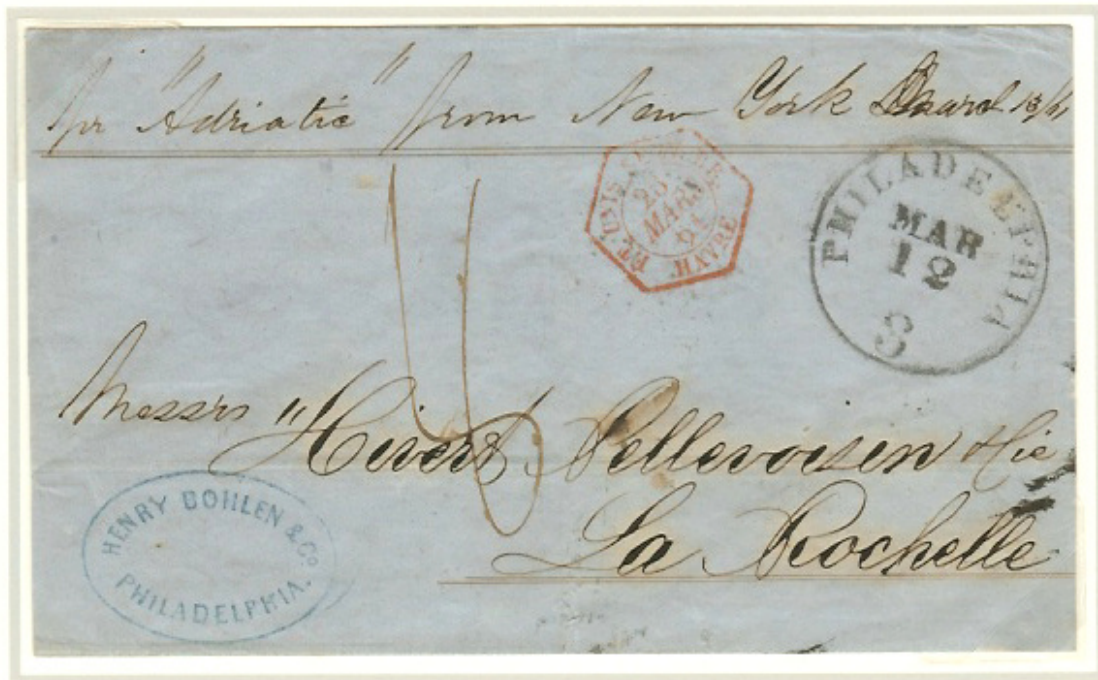 pr "Adriatic" from New York March 13/61
ET. UNIS SERV. AM. HAVRE
25
MARS
61
PHILADELPHIA
MAR
12
3
Messrs Hivert Pellevoisin & Cie
La Rochelle
HENRY BOHLEN & Co.
PHILADELPHIA.